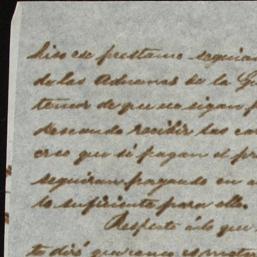 hizo ese prestamo seguiran
de las Aduanas de la Gu
temor de que no sigan p
deseando recibir las can
creo que si pagan el pr
seguiran pagando en a
lo suficiente para ello.
Respecto á lo que
te diré que como es